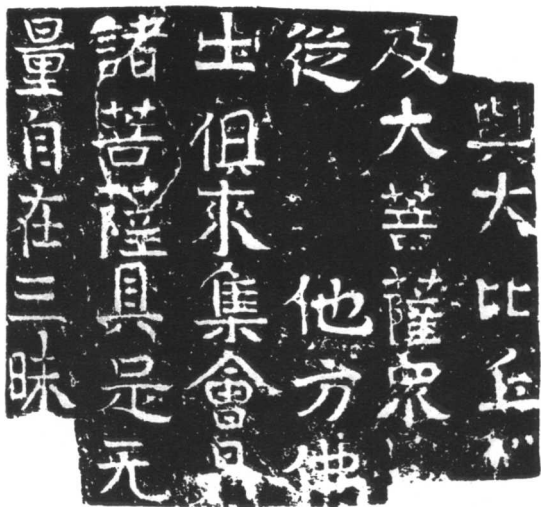 與大比丘
及大菩薩眾
從他方佛
土俱來集會是
諸菩薩具足无
量自在三昧